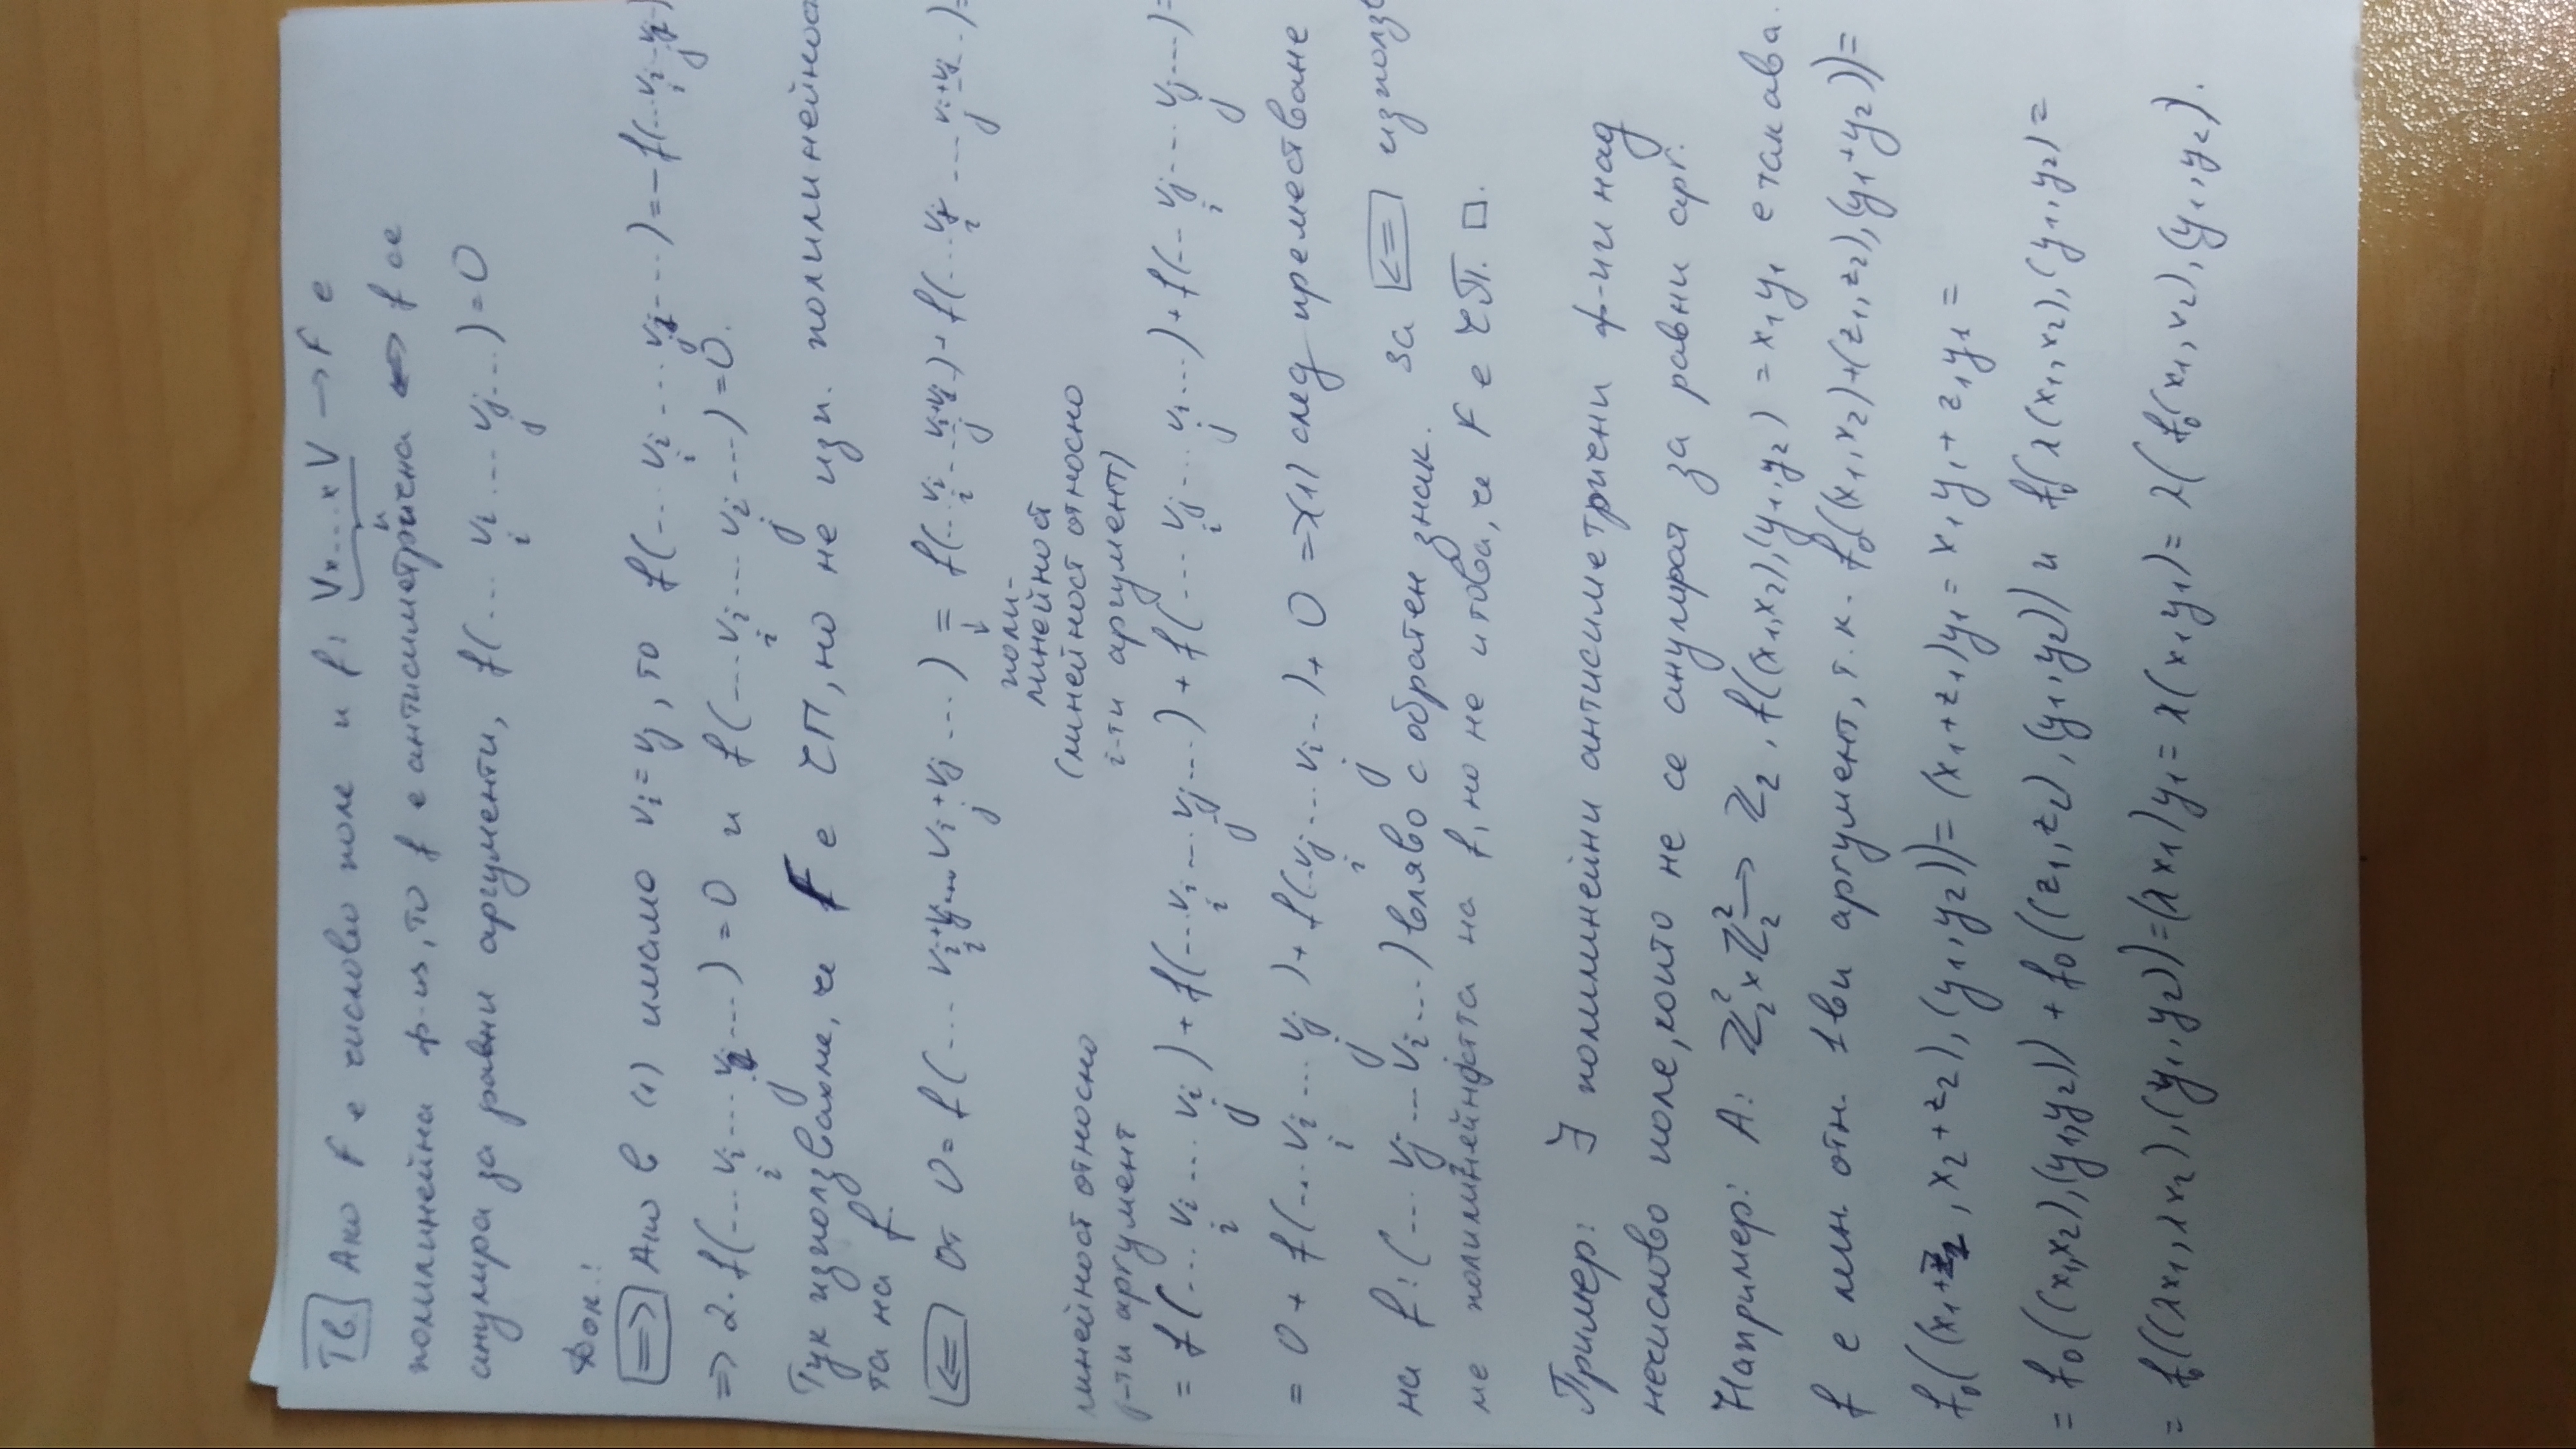 Тв. Ако F е числово поле и f: V x.....x V → F е
полилинейна ф-ия, то f е антисиметрична ⇔ f се
анулира за равни аргументи, f(... vi ... vj ...) = 0
Док.:
⇒ Ако в (1) имаме vi = vj, то f(... vi .... vj ...) = -f(... vi ... vj ...)
⇒ 2. f(... vi ... vj ...) = 0 и f(... vi ... vj ...) = 0.
Тук използвахме, че F е ЧП, но не изп. полилинейност
та на f.
⇐ От 0 = f(... vi+vj ... vi+vj ...) = f(... vi ... vi+vj ...) + f(... vj ... vi+vj ...) =
поли-
линейност
(линейност относно
i-ти аргумент)
линейност относно
j-ти аргумент
= f(... vi .... vi) + f(... vi ... vj ...) + f(.... vj .... vi ...) + f(... vj .... vj ...) =
= 0 + f(... vi ... vj) + f(... vj ... vi ...) + 0 => (1) след преместване
на f:(... vj ... vi ...) вляво с обратен знак. за ⇐ използв
ме полилинейността на f, но не и това, че F е ЧП. □.
Пример: ∃ полилинейни антисиметрични ф-ии над
нечислово поле, които не се анулират за равни арг.
Например: A: Z₂² x Z₂² → Z₂, f((x₁,x₂),(y₁,y₂)) = x₁y₁ е такава.
f е лин. отн. 1ви аргумент, т.к. f₀((x₁,x₂)+(z₁,z₂),(y₁+y₂)) =
f₀((x₁+z₁, x₂+z₂), (y₁,y₂)) = (x₁+z₁)y₁ = x₁y₁ + z₁y₁ =
= f₀((x₁,x₂),(y₁,y₂)) + f₀((z₁,z₂),(y₁,y₂)) и f₀(λ(x₁,x₂),(y₁,y₂) =
= f₀((λx₁,λx₂),(y₁,y₂)) = (λx₁)y₁ = λ(x₁y₁) = λ(f₀(x₁,x₂),(y₁,y₂).